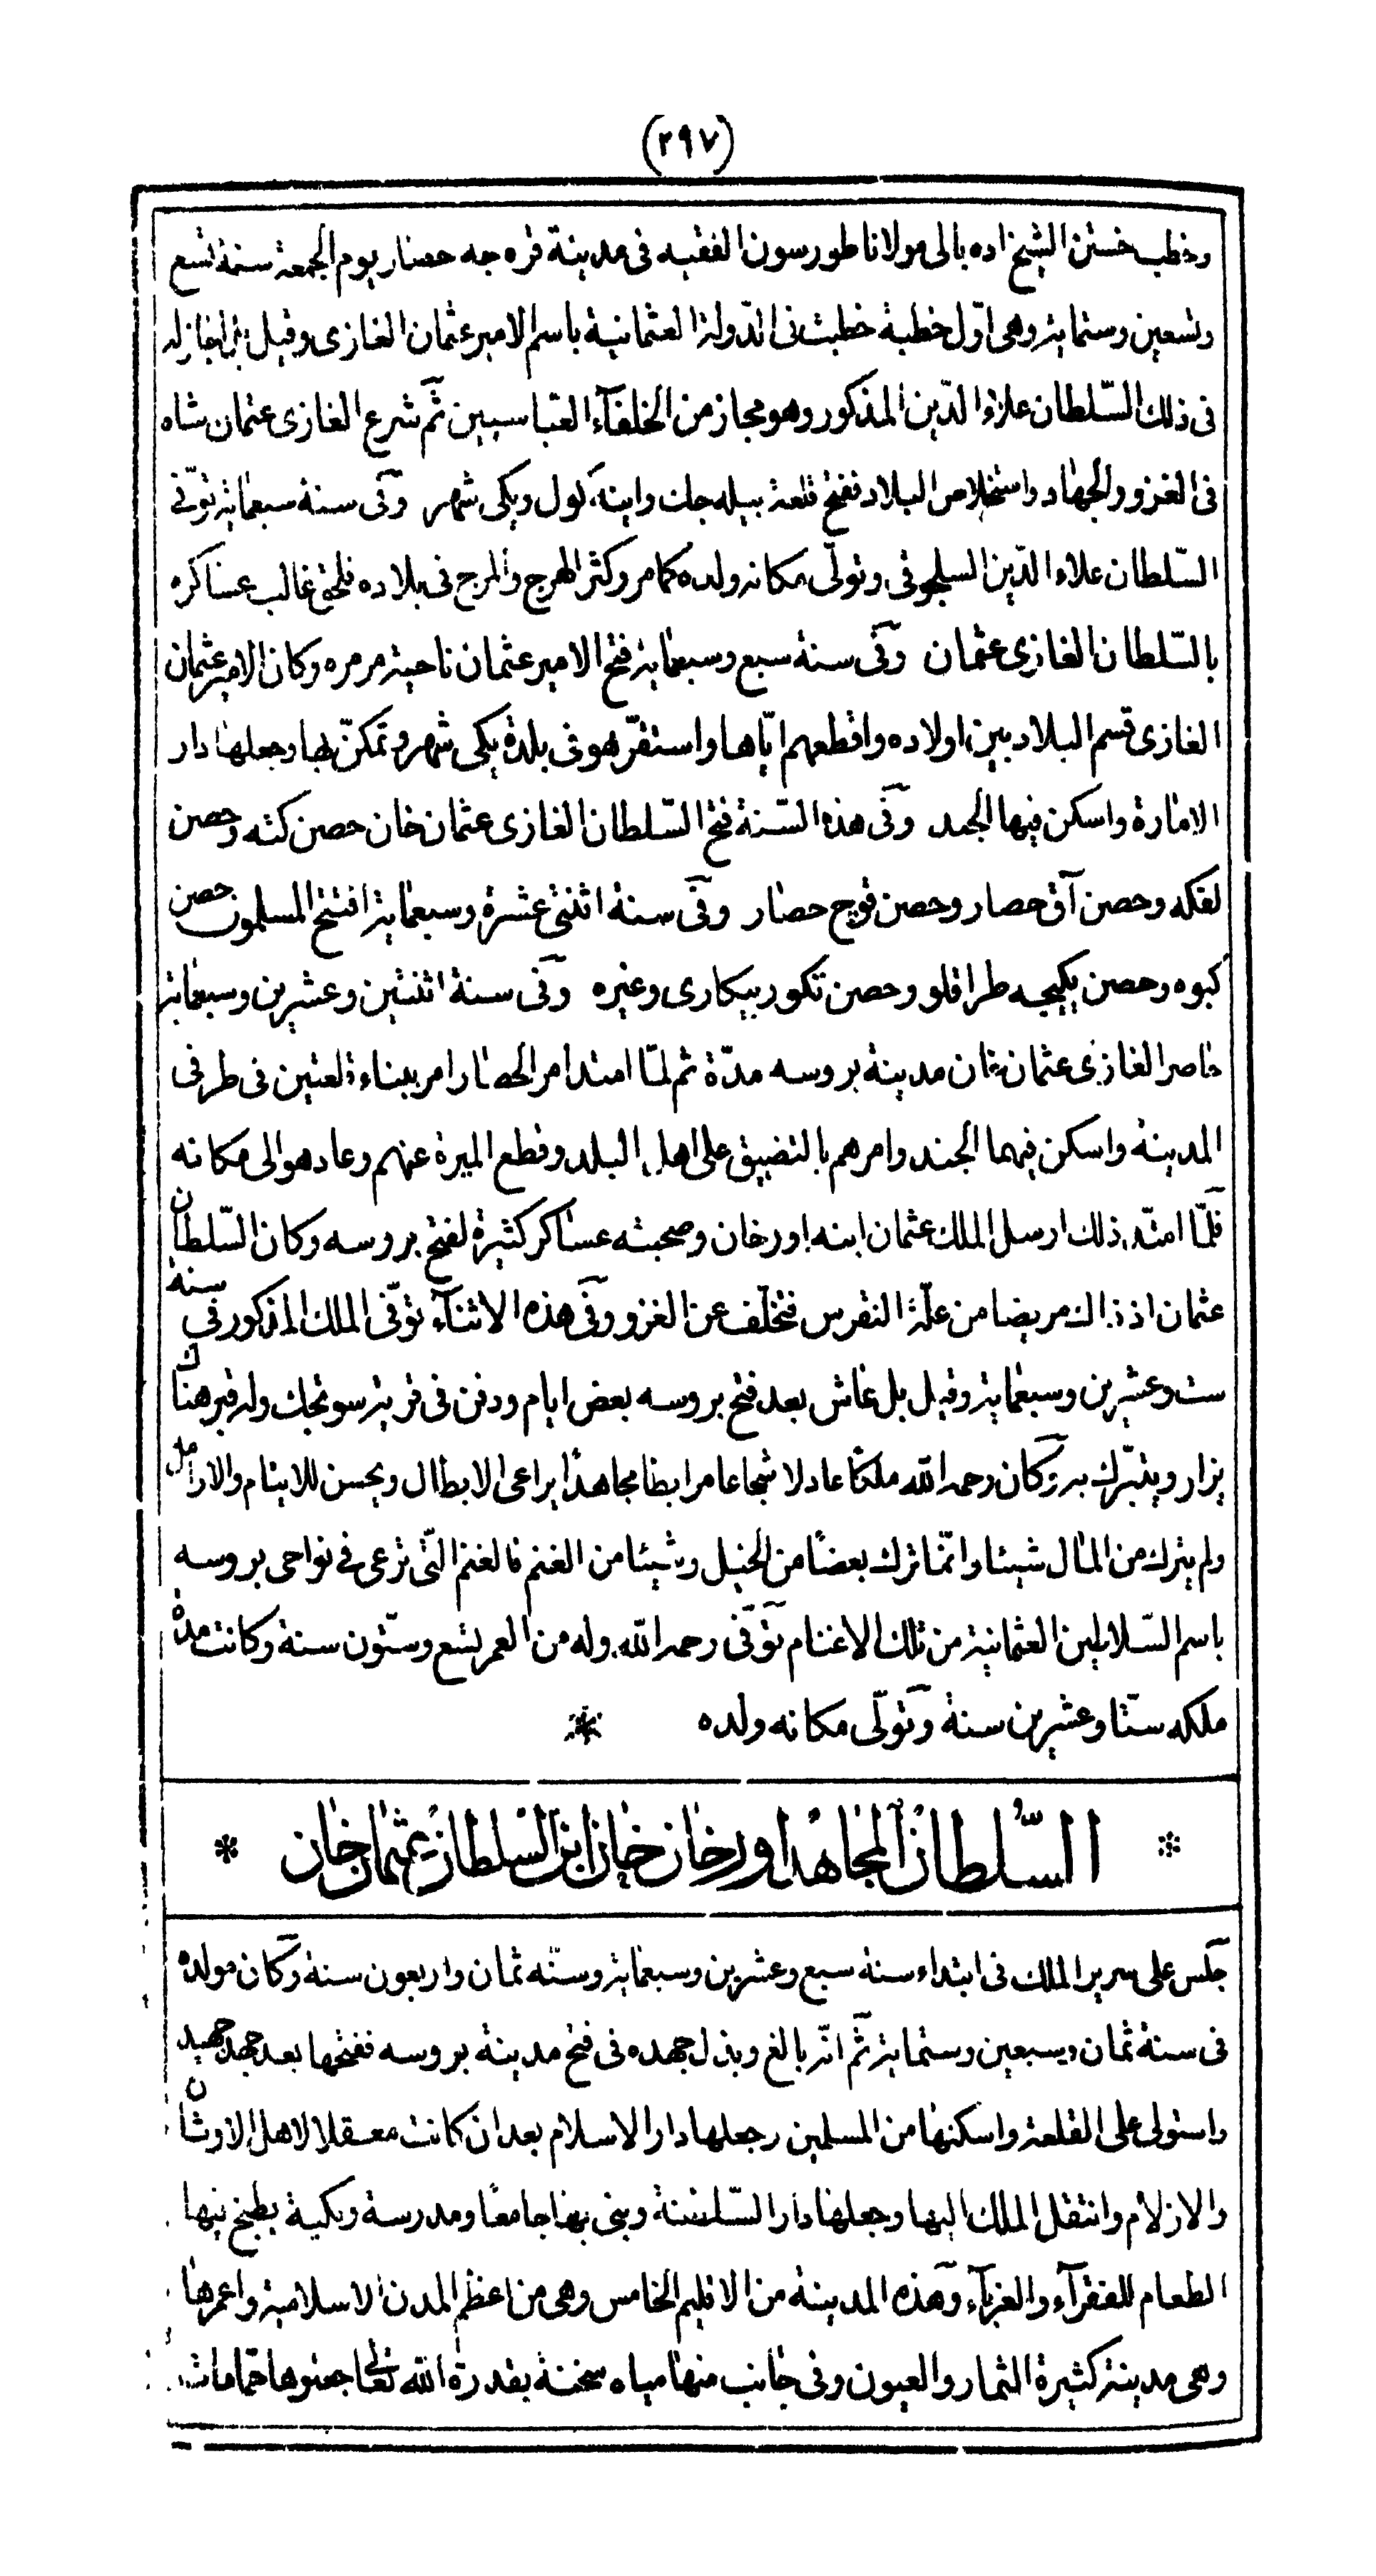 (٢٩٧)
وخطب ختن الشيخ اده بالى مولانا طورسون الفقيه فى مدينة قره جه حصار يوم الجمعة سنة تسع
وتسعين وستماية وهى اوّل خطبة خطبت فى الدّولة العثمانية باسم الامير عثمان الغازى وقيل انما جاز له
فى ذلك السّلطان علاء الدّين المذكور وهو مجاز من الخلفآء العبّاسيين ثم شرع الغازى عثمان شاه
فى الغزو والجهاد واستخلاص البلاد ففتح قلعة بيله جك واينه كول ويكى شهر وفى سنة سبعماية توفّى
السّلطان علاء الدّين السلجوقى وتولّى مكانه ولده كمامر وكثر الهرج والمرج فى بلاده فلحق غالب عساكره
بالسّلطان الغازى عثمان وفى سنة سبع وسبعماية فتح الامير عثمان ناحية مرمره وكان الامير عثمان
الغازى قسم البلاد بين اولاده واقطعهم ايّاها واستقرّ هو فى بلدة يكى شهر وتمكنّ بها وجعلها دار
الامارة واسكن فيها الجند وفى هذه السّنة فتح السّلطان الغازى عثمان خان حصن كته وحصن
لفكه وحصن آق حصار وحصن قوج حصار وفى سنة اثنتى عشرة وسبعماية افتتح المسلمون حصن
كبوه وحصن يكيجه طراقلو وحصن تكور بيكارى وغيره وفى سنة اثنتين وعشرين وسبعماية
حاصر الغازى عثمان خان مدينة بروسه مدّة ثم لمّا امتد امر الحصار امر ببناء قلعتين فى طرفى
المدينة واسكن فيهما الجند وامرهم بالتضييق على اهل البلد وقطع الميرة عنهم وعاد هو الى مكانه
فلمّا امتدّ ذلك ارسل الملك عثمان ابنه اورخان وصحبته عساكر كثيرة لفتح بروسه وكان السّلطان
عثمان اذ ذاك مريضا من علّة النقرس فتخلّف عن الغزو وفى هذه الاثنآء توفّى الملك المذكور فى سنة
ست وعشرين وسبعماية وقيل بل عاش بعد فتح بروسه بعض ايام ودفن فى قرية سوتجك وله قبر هناك
يزار ويتبّرك به وكان رحمه الله ملكا عادلا شجاعا مرابطا مجاهدا يراعى الابطال ويحسن للايتام والارامل
ولم يترك من المال شيئا وانّما ترك بعضا من الخيل وشيئا من الغنم فالغنم التّى ترعى فى نواحى بروسه
باسم السّلاطين العثمانية من تلك الاغنام توفّى رحمه الله وله من العمر تسع وستّون سنة وكانت مدة
ملكه ستّا وعشرين سنة وتولّى مكانه ولده *
* السّلطان المجاهد اورخان خان ابن السلطان عثمان خان *
جلس على سرير الملك فى ابتداء سنة سبع وعشرين وسبعماية وسنّه ثمان واربعون سنة وكان مولده
فى سنة ثمان وسبعين وستماية ثم انّه بالغ وبذل جهده فى فتح مدينة بروسه ففتحها بعد جهد جهيد
واستولى على القلعة واسكنها من المسلمين وجعلها دار الاسلام بعد ان كانت معقلا لاهل الاوثان
والازلام وانتقل الملك اليها وجعلها دار السّلطنة وبنى بها جامعا ومدرسة وتكية يطبخ فيها
الطعام للفقرآء والغربآء وهذه المدينة من الاقليم الخامس وهى من اعظم المدن الاسلامية واعمرها
وهى مدينة كثيرة الثمار والعيون وفى جانب منها مياه سخنة بقدرة الله تعالى جعلوها حمّامات